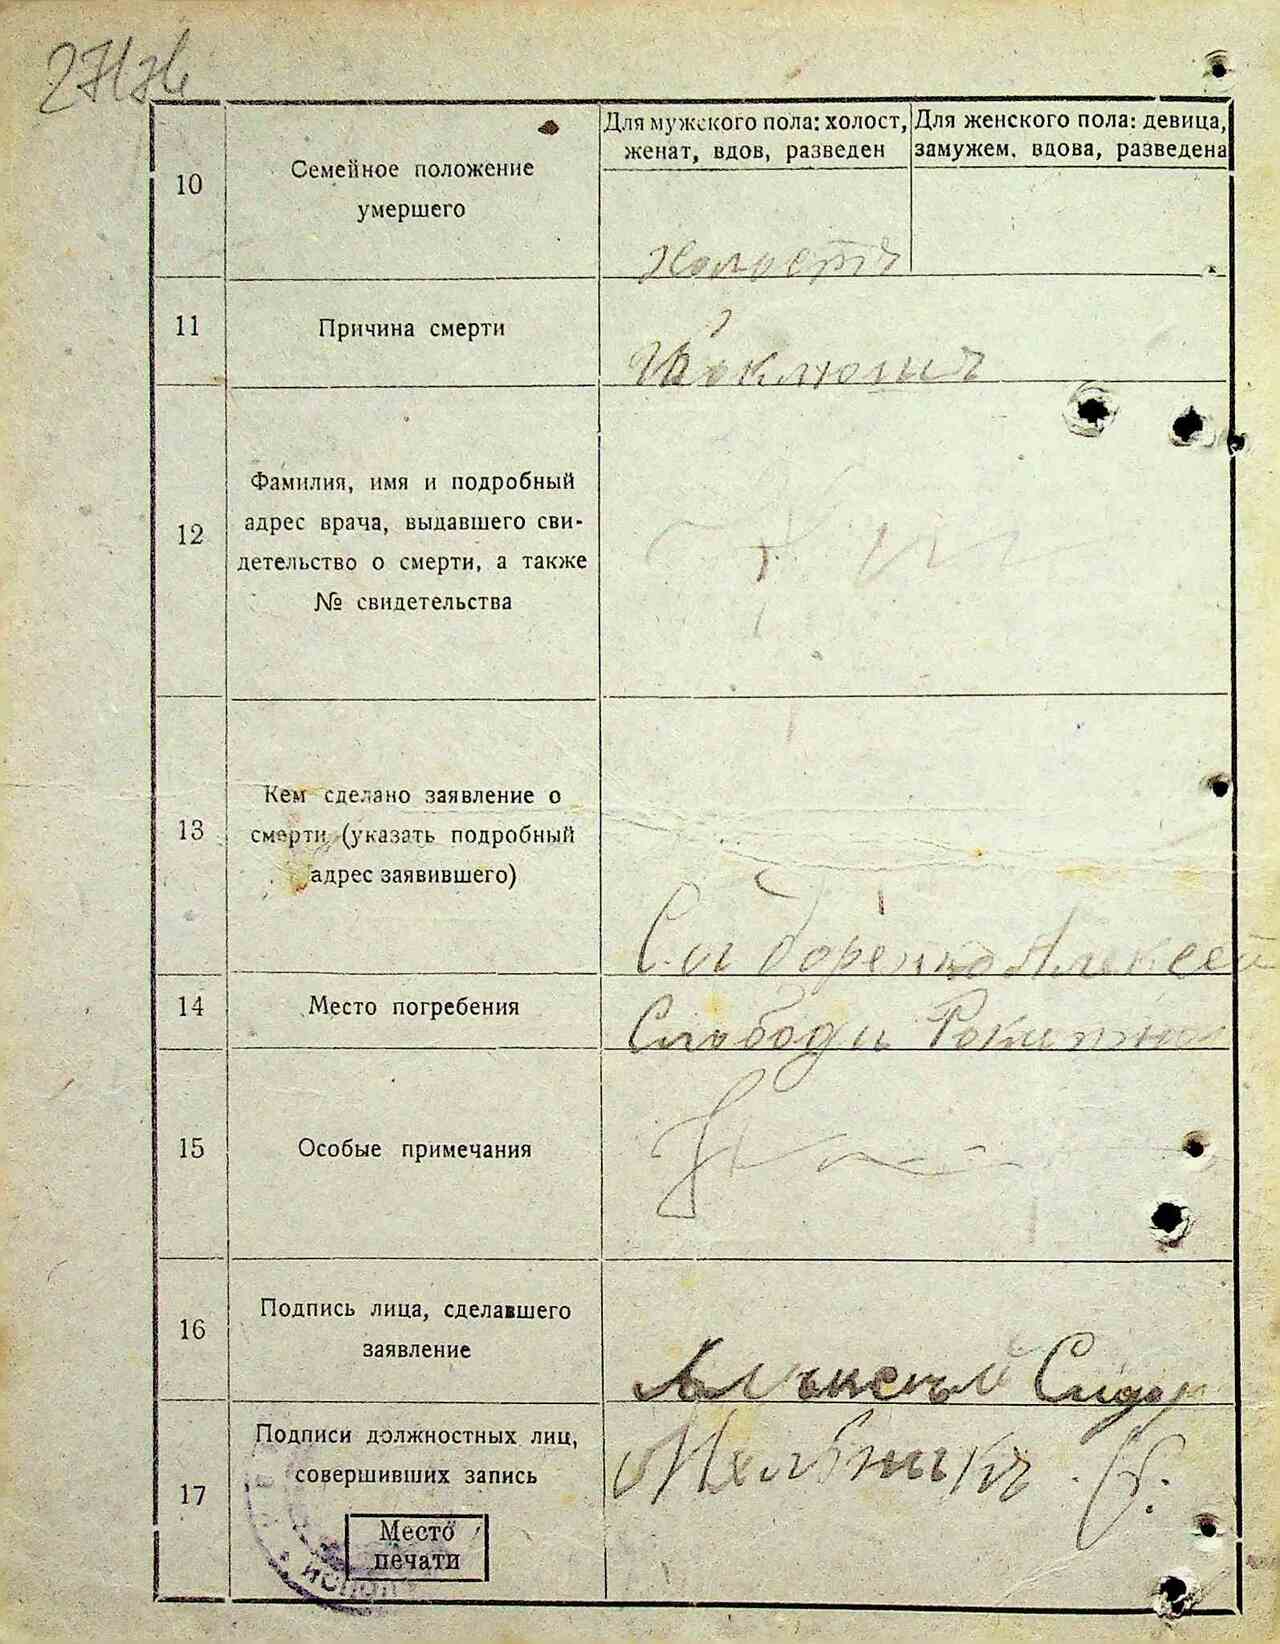 10
Семейное положение
умершего
Для мужского пола: холост,
женат, вдов, разведен
Для женского пола: девица,
замужем, вдова, разведена
Холостъ
11
Причина смерти
Коклюшъ
12
Фамилия, имя и подробный
адрес врача, выдавшего сви-
детельство о смерти, а также
№ свидетельства
13
Кем сделано заявление о
смерти (указать подробный
адрес заявившего)
Алексей
14
Место погребения
Слободи
15
Особые примечания
16
Подпись лица, сделавшего
заявление
Сидор
17
Подписи должностных лиц,
совершивших запись
Место
печати
Мельникъ